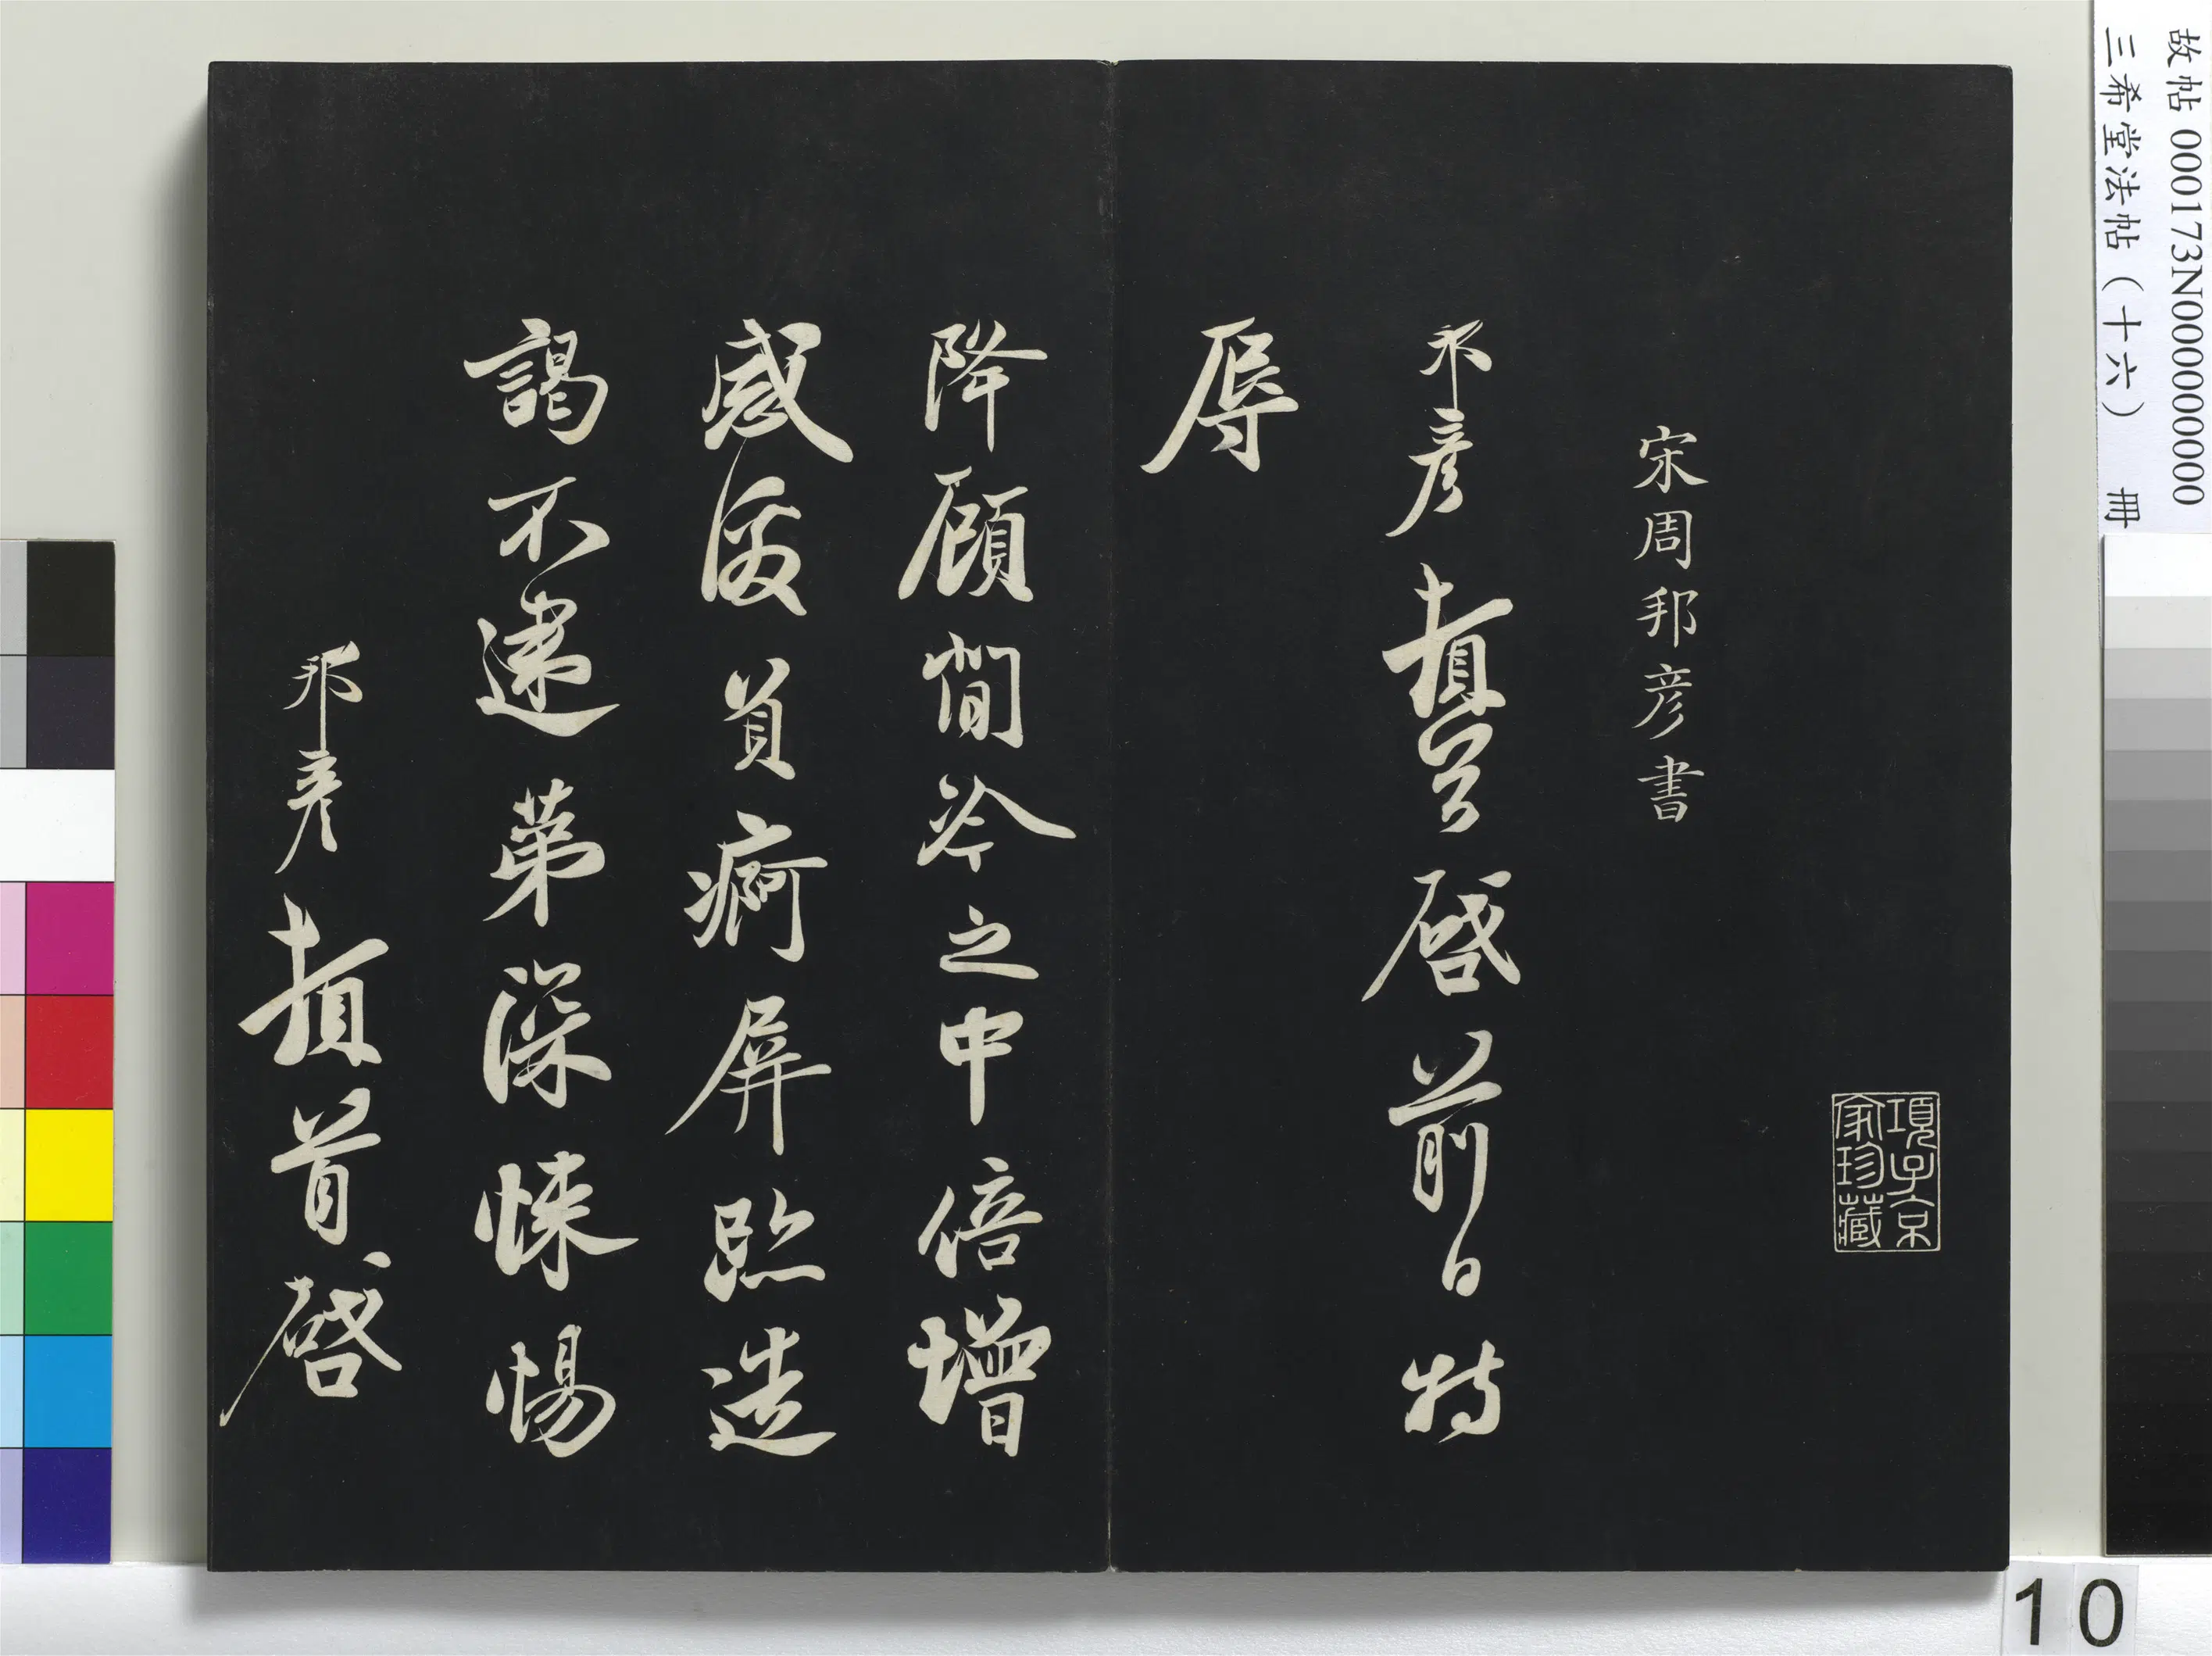 故帖 000173N000000000
三希堂法帖（十六） 冊
項子京
家珍藏
宋周邦彦書
邦彦頓首啓前日特
辱
降顧閒冷之中倍增
感激負痾屏跧造
謁不逮第深悚惕
邦彦頓首啓
10